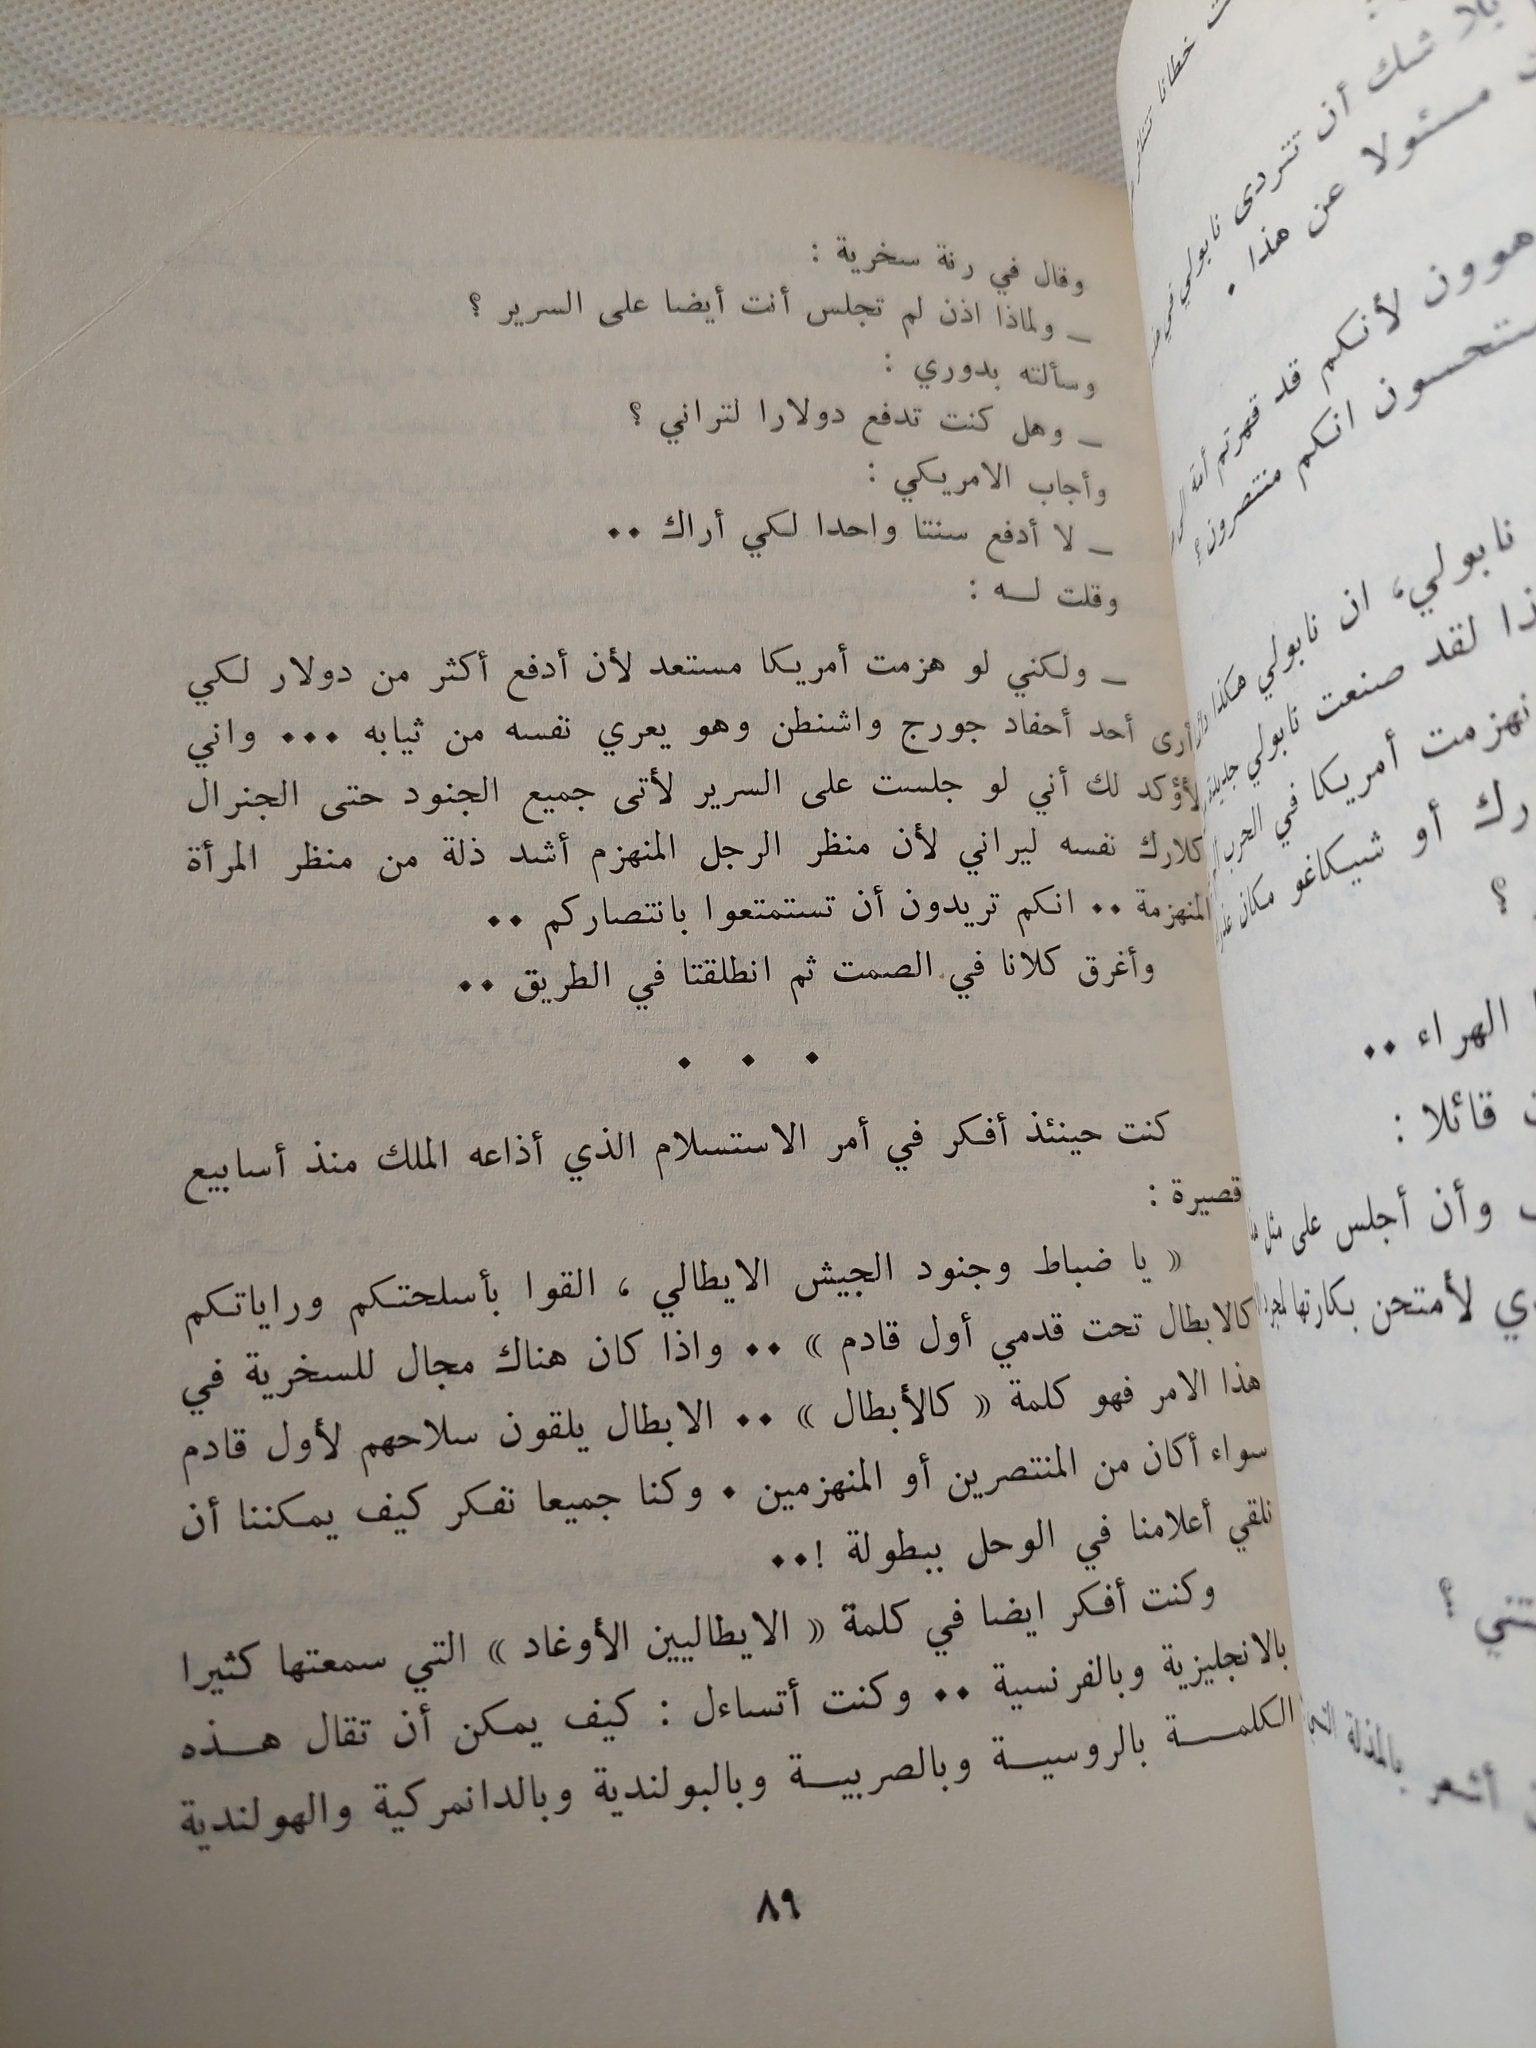 وقال في رنة سخرية :
ــ ولماذا اذن لم تجلس أنت أيضا على السرير ؟
وسألته بدوري :
ــ وهل كنت تدفع دولارا لتراني ؟
وأجاب الامريكي :
ــ لا أدفع سنتا واحدا لكي أراك ..
وقلت لــه :
ــ ولكني لو هزمت أمريكا مستعد لأن أدفع أكثر من دولار لكي
أرى أحد أحفاد جورج واشنطن وهو يعري نفسه من ثيابه ... واني
لأؤكد لك أني لو جلست على السرير لأتى جميع الجنود حتى الجنرال
كلارك نفسه ليراني لأن منظر الرجل المنهزم أشد ذلة من منظر المرأة
المنهزمة .. انكم تريدون أن تستمتعوا بانتصاركم ..
وأغرق كلانا في الصمت ثم انطلقتا في الطريق ..
. . .
كنت حينئذ أفكر في أمر الاستسلام الذي أذاعه الملك منذ أسابيع
قصيرة :
« يا ضباط وجنود الجيش الايطالي ، القوا بأسلحتكم وراياتكم
كالابطال تحت قدمي أول قادم » .. واذا كان هناك مجال للسخرية في
هذا الامر فهو كلمة « كالأبطال » .. الابطال يلقون سلاحهم لأول قادم
سواء أكان من المنتصرين أو المنهزمين . وكنا جميعا نفكر كيف يمكننا أن
نلقي أعلامنا في الوحل ببطولة !..
وكنت أفكر ايضا في كلمة « الايطاليين الأوغاد » التي سمعتها كثيرا
بالانجليزية وبالفرنسية .. وكنت أتساءل : كيف يمكن أن تقال هــذه
الكلمــــة بالروسيــة وبالصربيــة وبالبولندية وبالدانمركية والهولندية
٨٩
خطانا
بلا شك أن تتردى نابولي في
مسئولا عن هذا .
لأنكم قد قهرتم أمة
ستحسون انكم منتصرون؟
نابولي، ان نابولي هكذا
لقد صنعت نابولي جديلة
أمريكا في الحرب
أو شيكاغو مكان
؟
الهراء ..
قائلا :
وأن أجلس على مثل هذا
لأمتحن بكارتها لمجرد
؟
أشعر بالمذلة التي